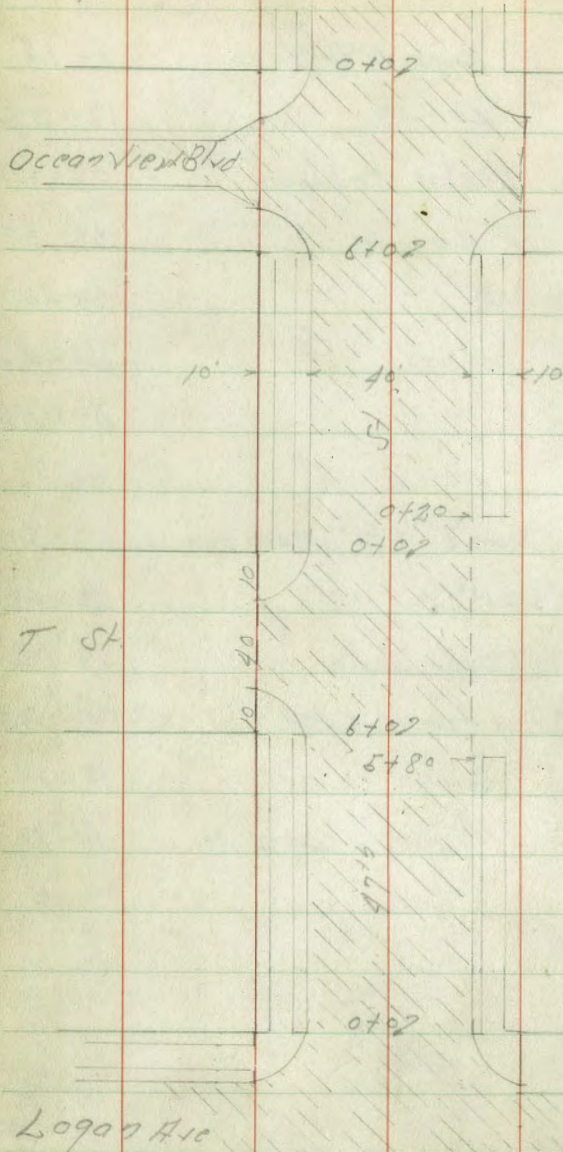 0+02
Ocean View Blvd
6+02
10' 40' 10
St.
0+20
0+02
10
T St.
40
10
6+02
5+80
47th
0+02
Logan Ave